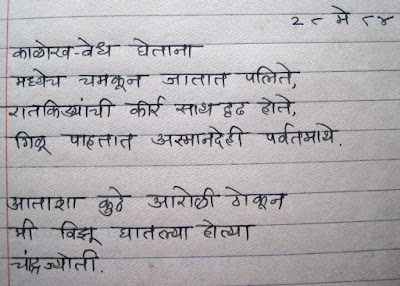 २८ मे ८४
काळोख-वेध घेताना
मध्येच चमकून जातात पलिते,
रातकिड्यांची कीर्र साथ द्वढ होते,
गिळू पाहतात अस्मानदेही पर्वतमाथे.
आताशा कुठे आरोळी ठोकून
मी विझू घातल्या होत्या
चंद्रज्योती.